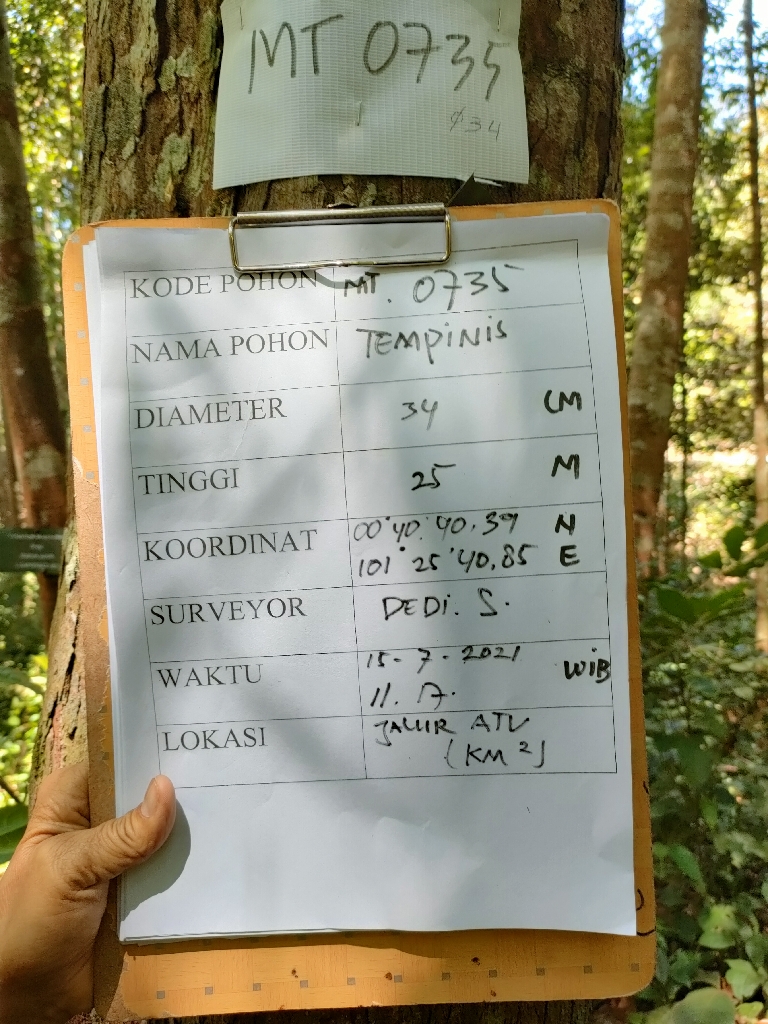 MT 0735
∅34
KODE POHON MT. 0735
NAMA POHON TEMPINIS
DIAMETER 34 CM
TINGGI 25 M
KOORDINAT 00°40'40,39 N
101°25'40,85 E
SURVEYOR DEDI. S.
WAKTU 15-7-2021 WIB
11.17.
LOKASI JALUR ATV
(KM 2)